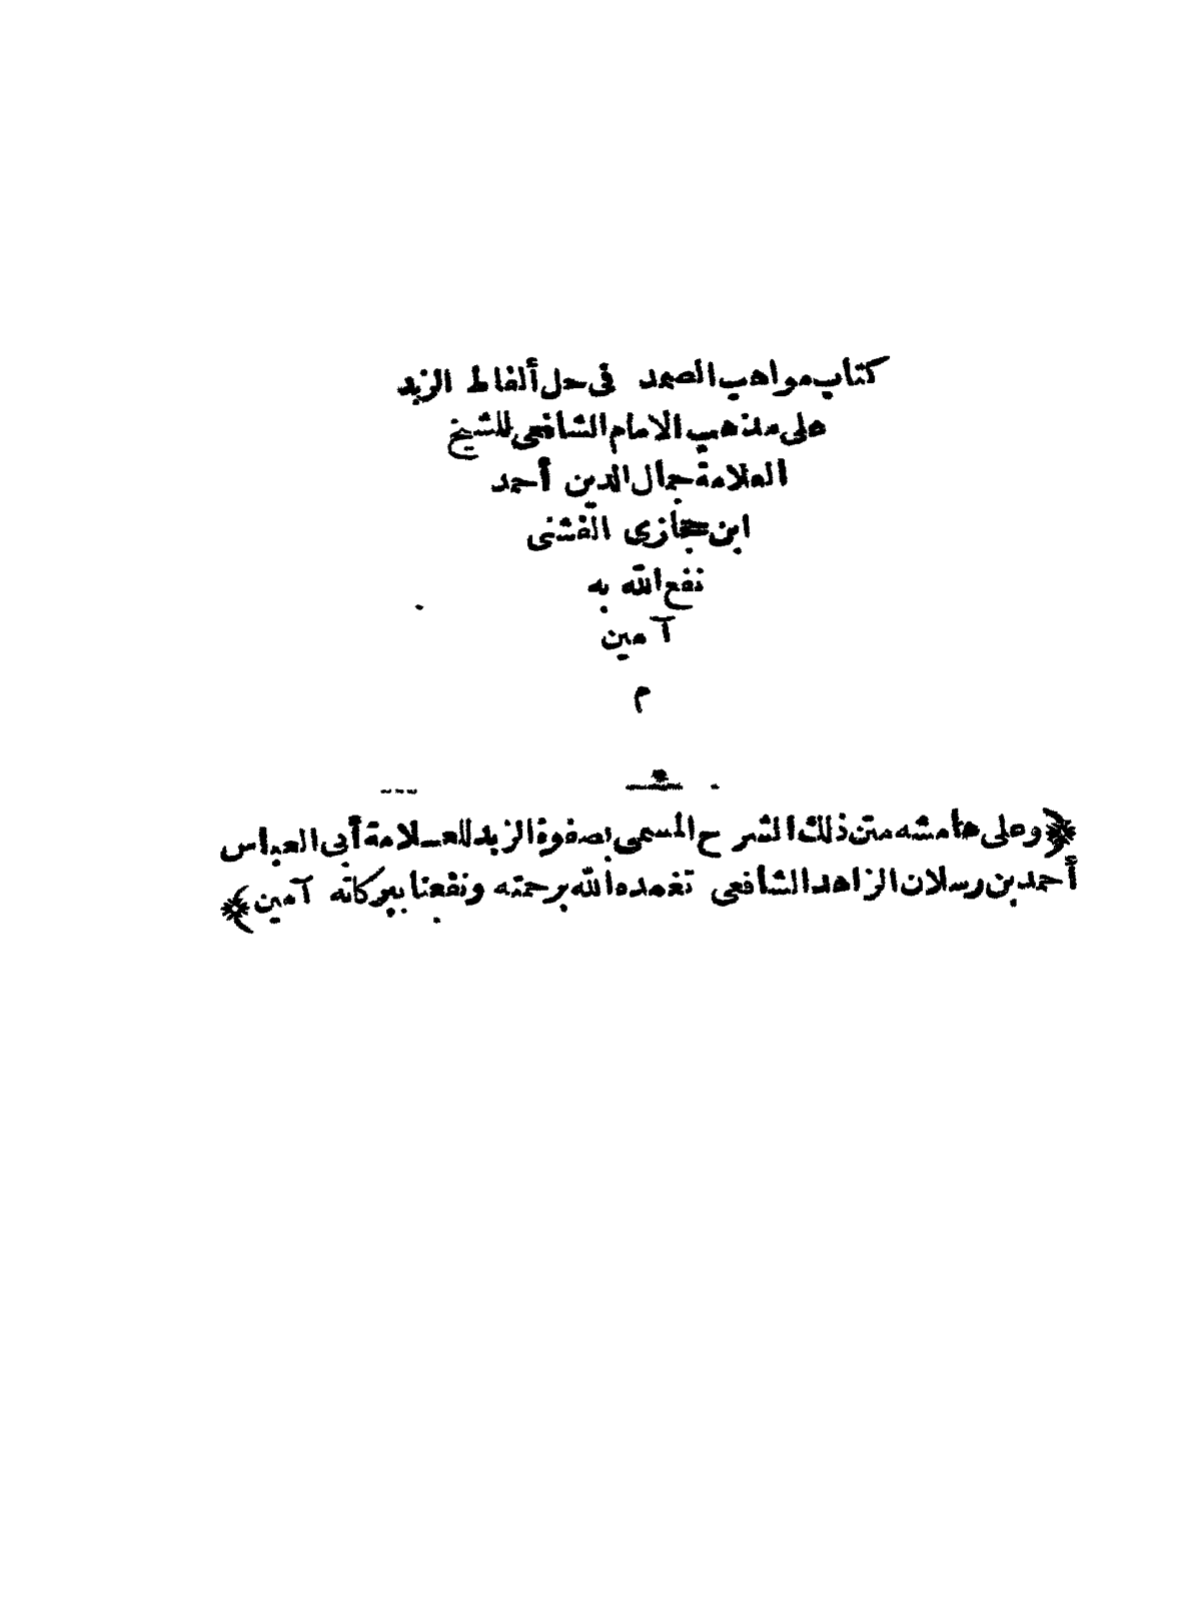 كتاب مواهب الصمد فى حل ألفاظ الزبد
على مذهب الامام الشافعى للشيخ
العلامة جمال الدين أحمد
ابن حجازى الفشنى
نفع الله به
آمين
م
﴿وعلى هامشه متن ذلك الشرح المسمى بصفوة الزبد للعلامة أبى العباس
أحمد بن رسلان الزاهد الشافعى تغمده الله برحمته ونفعنا ببركاته آمين﴾